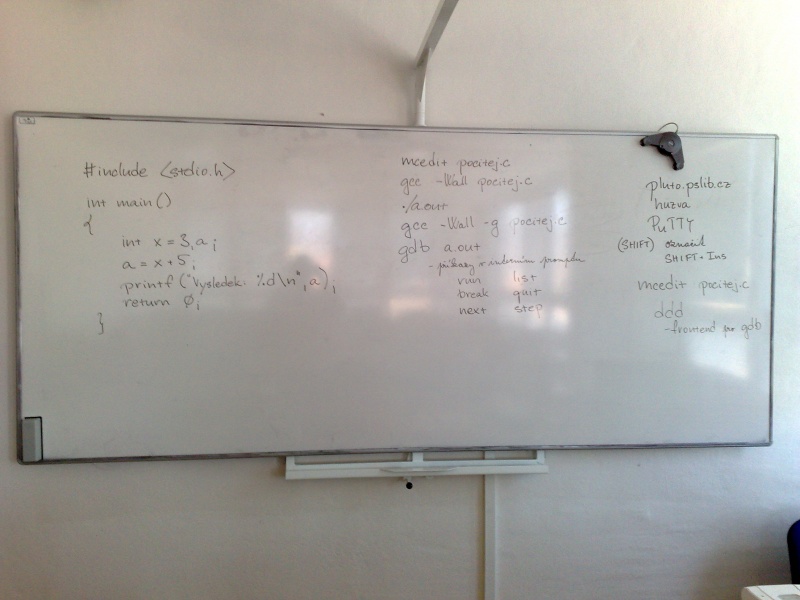 #include <stdio.h>
int main()
{
int x = 3, a;
a = x + 5;
printf("Vysledek: %d\n", a);
return 0;
}
mcedit pocitej.c
gcc -Wall pocitej.c
./a.out
gcc -Wall -g pocitej.c
gdb a.out
- příkazy v interním promptu
run list
break quit
next step
pluto.pslib.cz
huzva
PuTTY
(SHIFT) označit
SHIFT+Ins
mcedit pocitej.c
ddd
- frontend pro gdb